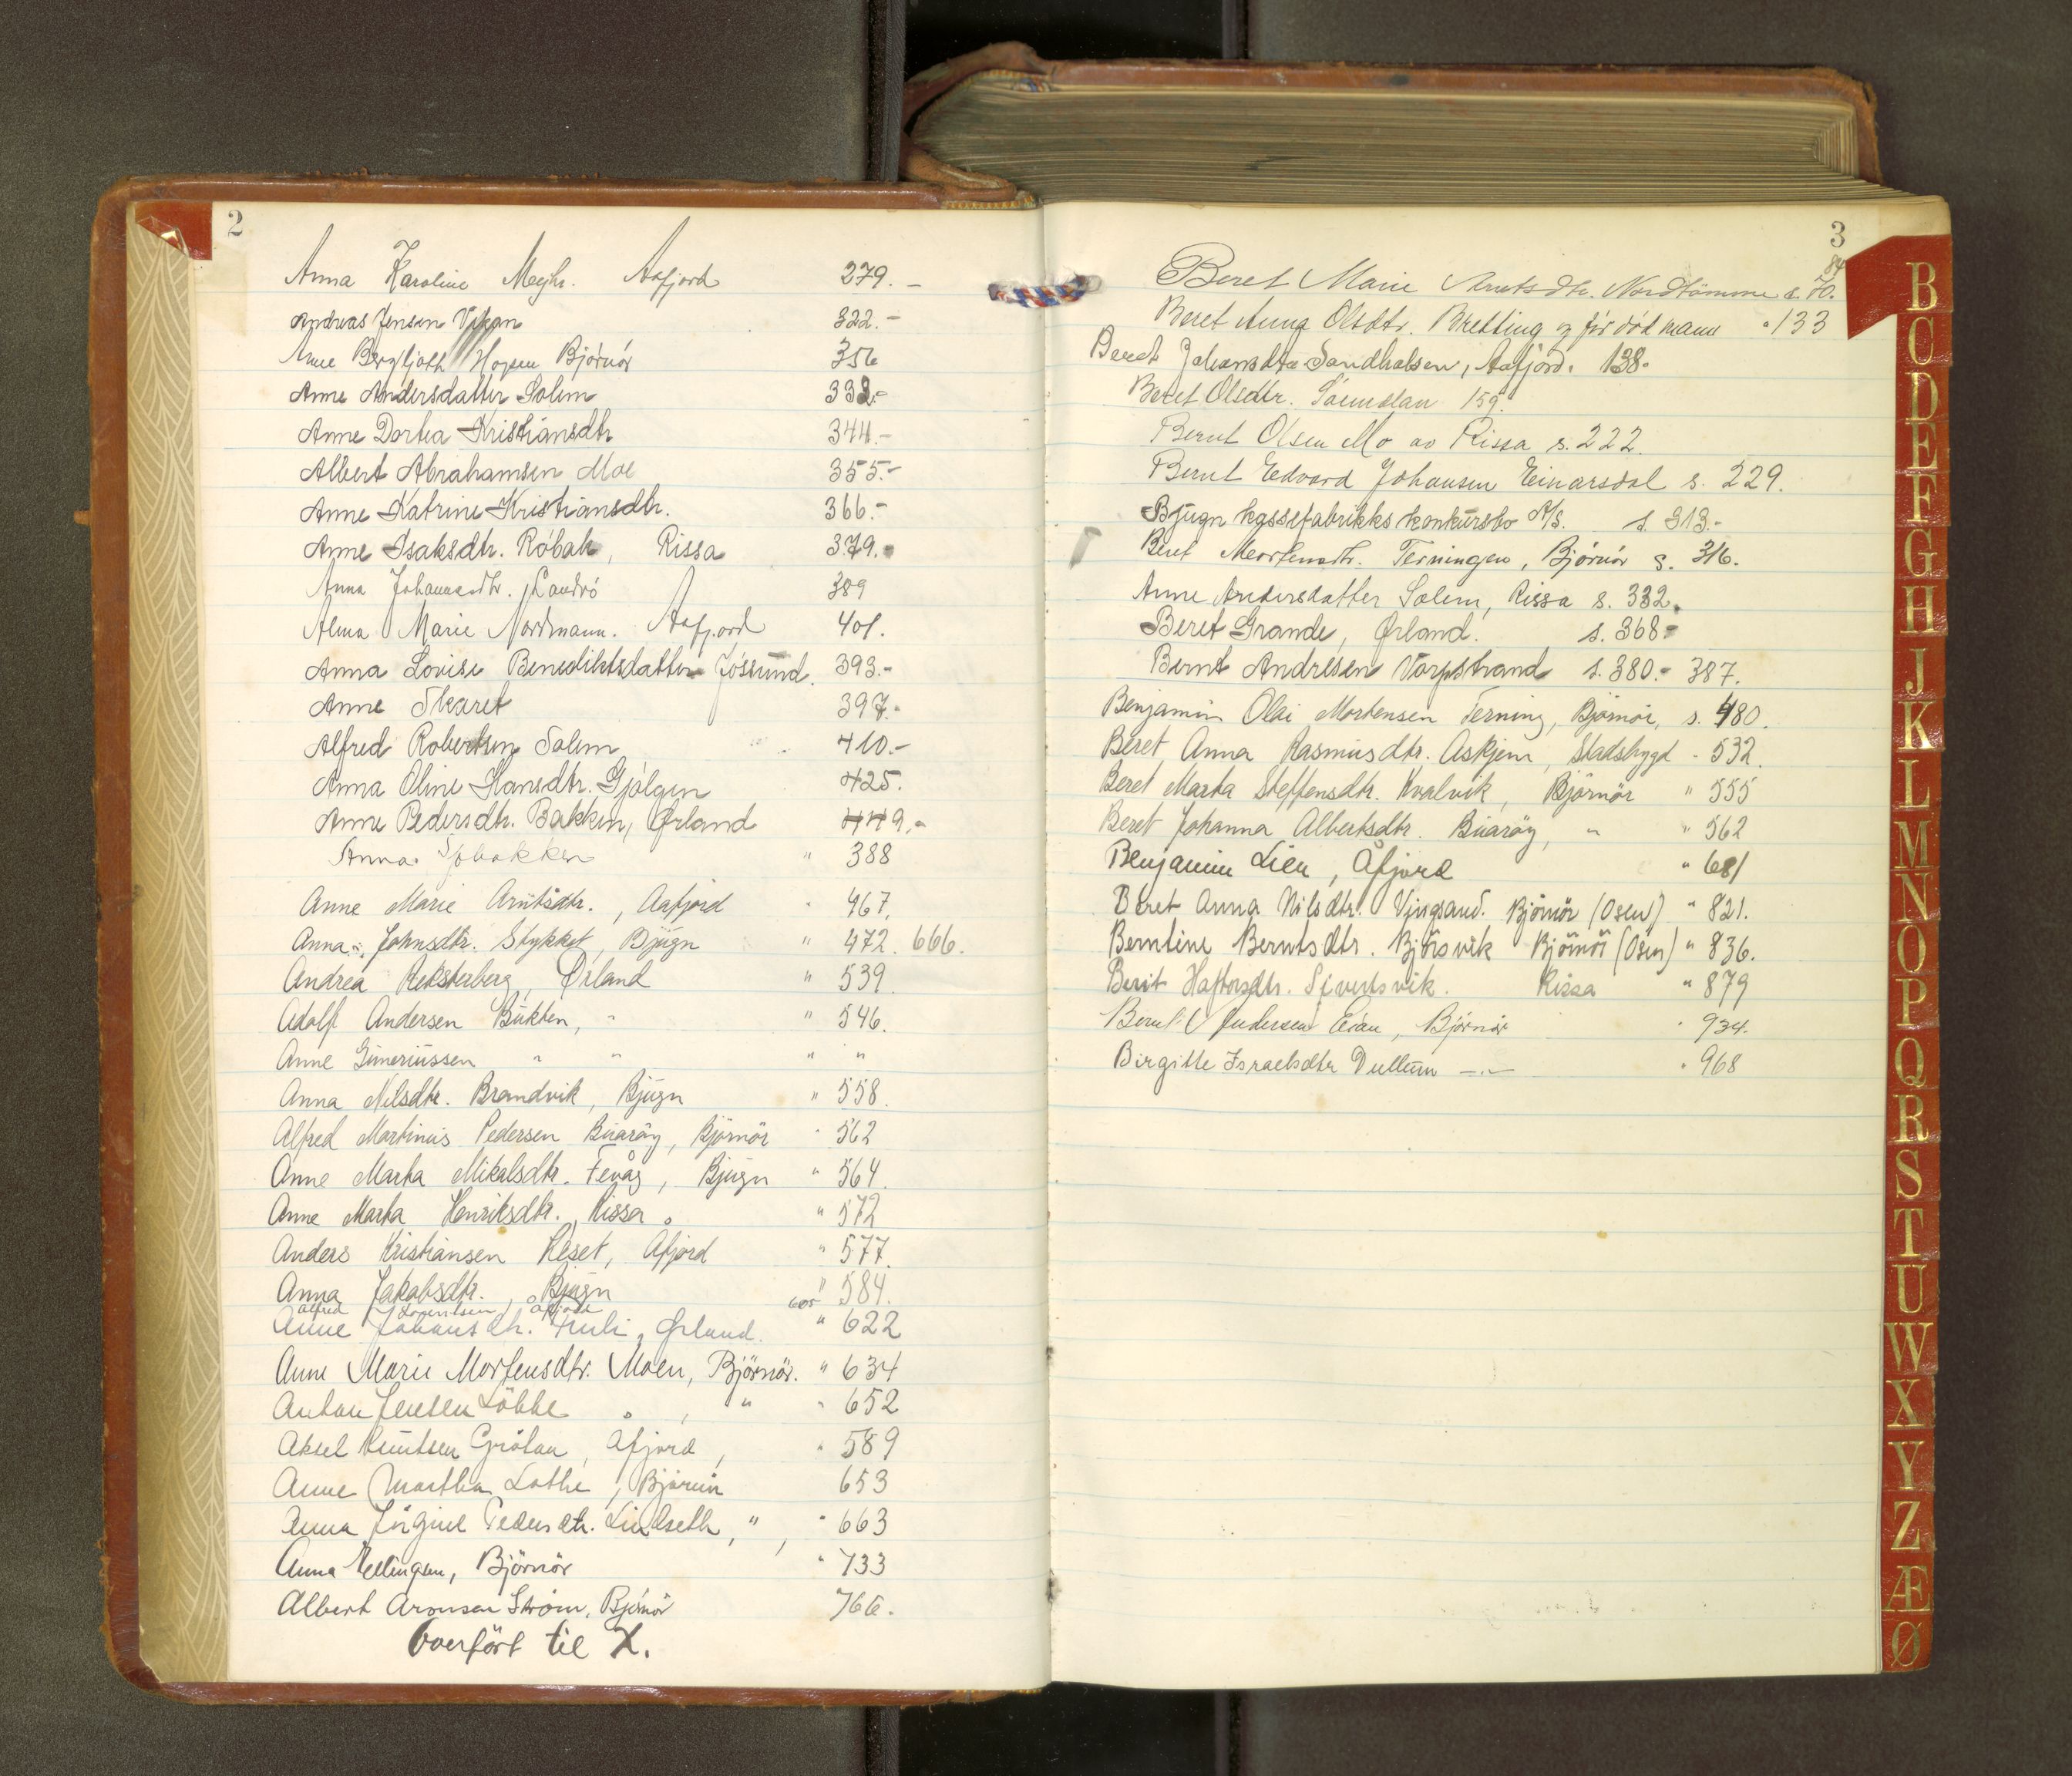 2
Anna Karoline Aafjord 279.-
Andreas Jensen Vikan 322.-
Anne Bergljoth Hopen Björnör 356
Anne Andersdatter Solem 332.-
Anne Dortea Kristiansdtr 344.-
Albert Abrahamsen Moe 355.-
Anne Katrine Kristiansdtr. 366.-
Anne Isaksdtr. Röbak, Rissa 379.-
Anna Johannesdtr. Landrö 389
Alma Marie Nordmann. Aafjord 401.
Anna Lovise Benediktsdatter Jössund. 393.-
Anne Skaret 397.-
Alfred Robertsen Solem 410.-
Anna Oline Hansdtr. Gjölgen 425.
Anne Pedersdtr. Bakken, Ørland 449.-
Anna " 388
Anne Marie Arntsdtr., Aafjord " 467.
Anna Johnsdtr. Stykket, Bjugn " 472. 666.
Andrea Reksterberg, Ørland " 539.
Adolf Andersen Bukten, " " 546.
Anne Gimeriussen " " " "
Anna Nilsdtr. Brandvik, Bjugn " 558.
Alfred Martinus Pedersen Buaröy, Björnör " 562
Anne Marta Mikalsdtr. Fevåg, Bjugn " 564.
Anne Marta Henriksdtr., Rissa " 572
Anders Kristiansen Reset, Åfjord " 577.
Anna Jakobsdtr., Bjugn " 584.
Alfred Lorentsen, Åfjord 605
Anne Johansdtr. Ørland. " 622
Anne Marie Mortensdtr. Moen, Björnör. " 634
Anton Jensen Löthe " " 652
Aksel Knutsen Grötan, Åfjord, " 589
Anne Martha Lothe, Björnör 653
Anna Jörgine Pedersdtr. Lindseth, ", " 663
Anna Ellingsen, Björnör " 733
Albert Aronsen Ström, Björnör 766.
Overfört til X.
3
84
Beret Marie Arntsdtr. Nordtömme s. 70.
Beret Anna Olsdtr. Bretting og för död mann " 133
Beret Johansdtr Sandhalsen, Aafjord. 138.
Beret Olsdtr. 159.
Bernt Olsen Mo av Rissa s. 222.
Bernt Edvard Johansen Einarsdal s. 229.
Bjugn kassefabrikks konkursbo A/S. s. 313.-
Beret Mortensdtr. Terningen, Björnör s. 316.
Anne Andersdatter Solem, Rissa s. 332.
Beret Grande, Ørland. s. 368.-
Bernt Andresen Vorpstrand s. 380.- 387.
Benjamin Olai Mortensen Terning, Björnör, s. 480.
Beret Anna Rasmusdtr. Askjem, Stadsbygd - 532.
Beret Marta Steffensdtr. Kvalvik, Björnör " 555
Beret Johanna Albertsdtr. Buaröy, " " 562
Benjamin Lien, Åfjord " 681
Beret Anna Nilsdtr. Vingsand. Björnör (Osen) " 821.
Berntine Berntsdtr. Björsvik Björnör (Osen) " 836.
Berit Haftorsdtr. Sivertsvik. Rissa " 879
Bernt Andersen Eian, Björnör " 934.
Birgitte Israelsdtr Dullum -"- " 968
B
C
D
E
F
G
H
J
K
L
M
N
O
P
Q
R
S
T
U
W
X
Y
Z
Æ
Ø